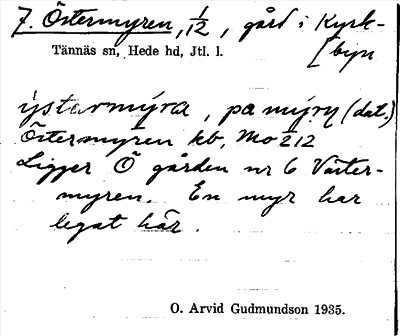 7. Östermyren, 1/12, gård i Kyrk-
[byn
Tännäs sn, Hede hd, Jtl. l.
ýstarmýra, pa mýrn (dat.)
Östermyren kb, Mo 212
Ligger Ö gården nr 6 Väster-
myren. En myr har
legat här.
O. Arvid Gudmundson 1935.